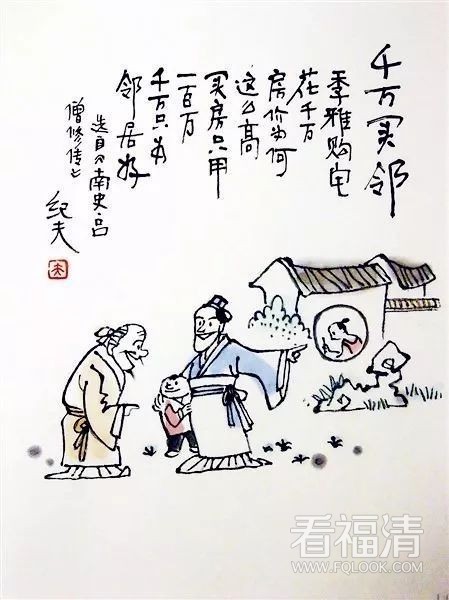 千万买邻
季雅购宅
花千万
房价为何
这么高
买房只用
一百万
千万只为
邻居好
选自《南史·吕
僧珍传》
纪夫
夫
看福清
WWW.FQLOOK.COM